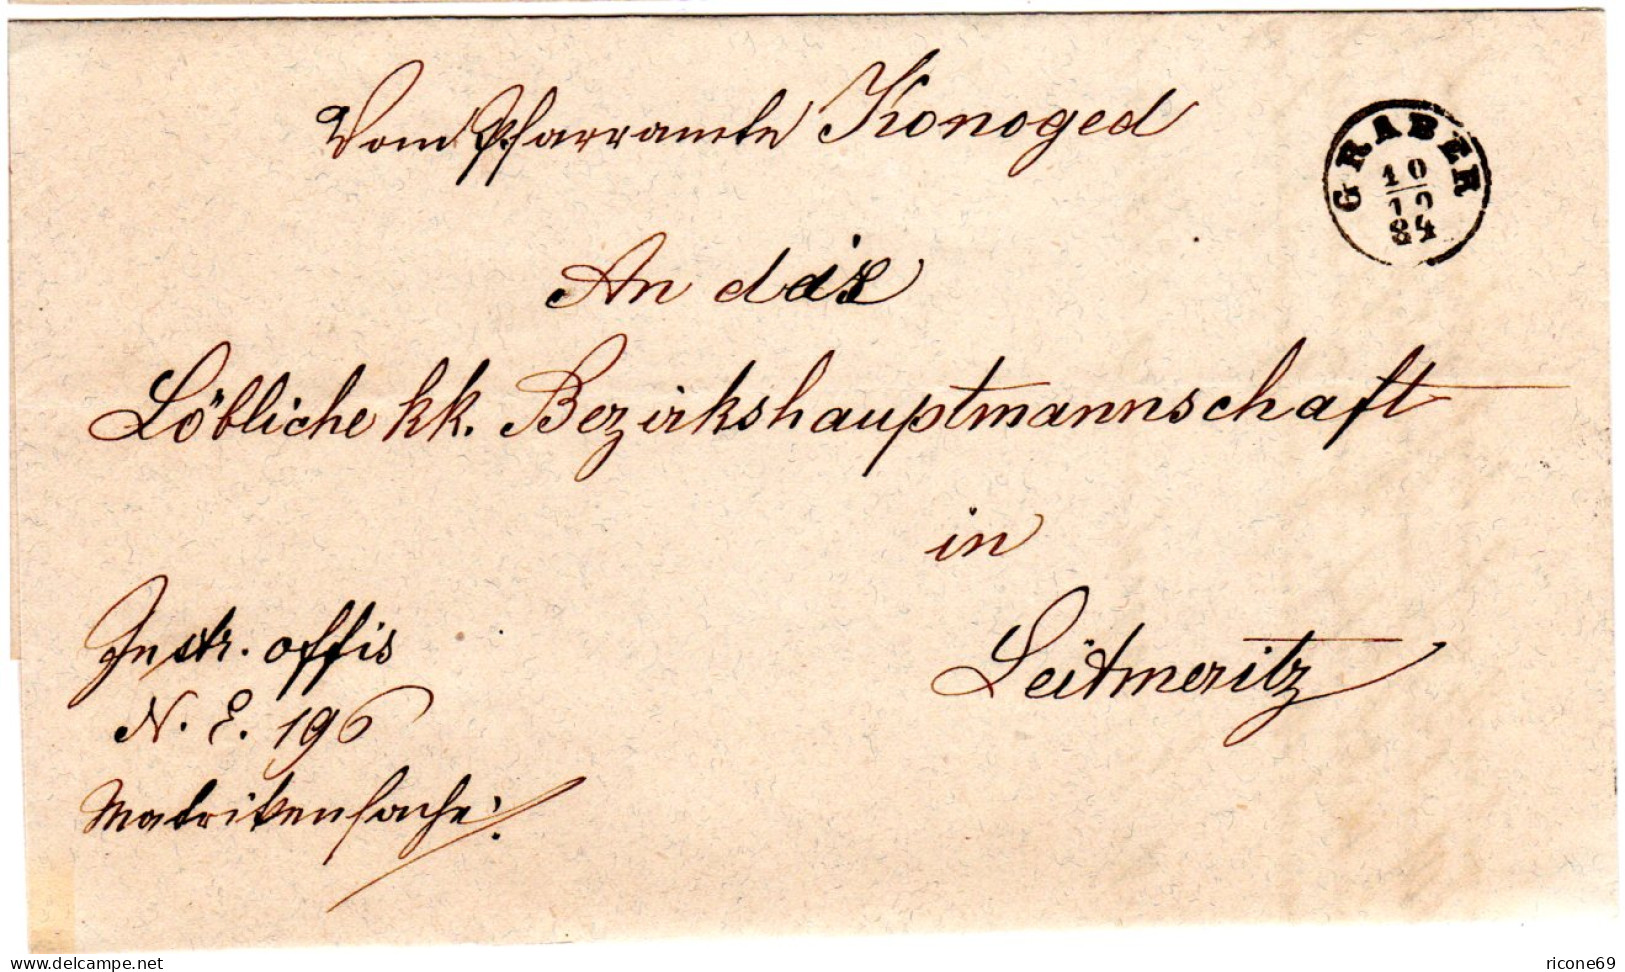 Vom Pfarramte Konoged
GRABER
10
84
An das
Löbliche kk. Bezirkshauptmannschaft
in
Leitmeritz
offis
N. E. 196
Matrikensache!
www.delcampe.net
ricone69